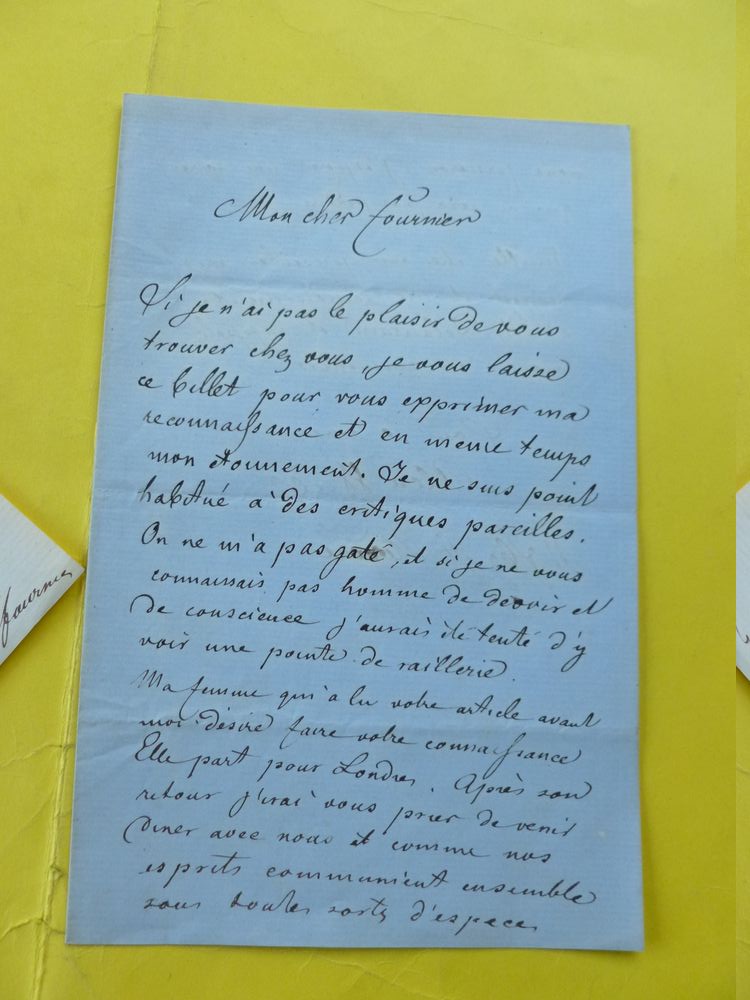 Mon cher fournier
Si je n'ai pas le plaisir de vous
trouver chez vous, je vous laisse
ce billet pour vous exprimer ma
reconnaissance et en meme temps
mon étonnement. Je ne suis point
habitué à des critiques pareilles.
On ne m'a pas gaté, et si je ne vous
connaissais pas homme de devoir et
de conscience j'aurais été tenté d'y
voir une pointe de raillerie.
Ma femme qui a lu votre article avant
moi désire faire votre connaissance
Elle part pour Londres. Après son
retour j'irai vous prier de venir
diner avec nous et comme nos
esprits communient ensemble
sous toutes sortes d'espaces
fournier